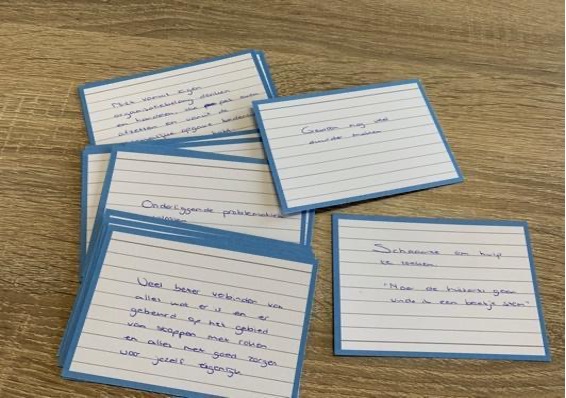 Niet vanuit eigen
organisatiebelang denken
en handelen, die pet even
afzetten en vanuit de
opgave
Gewoon nog veel
mensen
Onderliggende problematiek
Veel beter verbinden van
alles wat er is en er
gebeurd op het gebied
van stoppen met roken
en alles met goed zorgen
voor jezelf eigenlijk
Schaamte om hulp
te zoeken
"Naar de huisarts gaan
vinde ik een beetje stom"